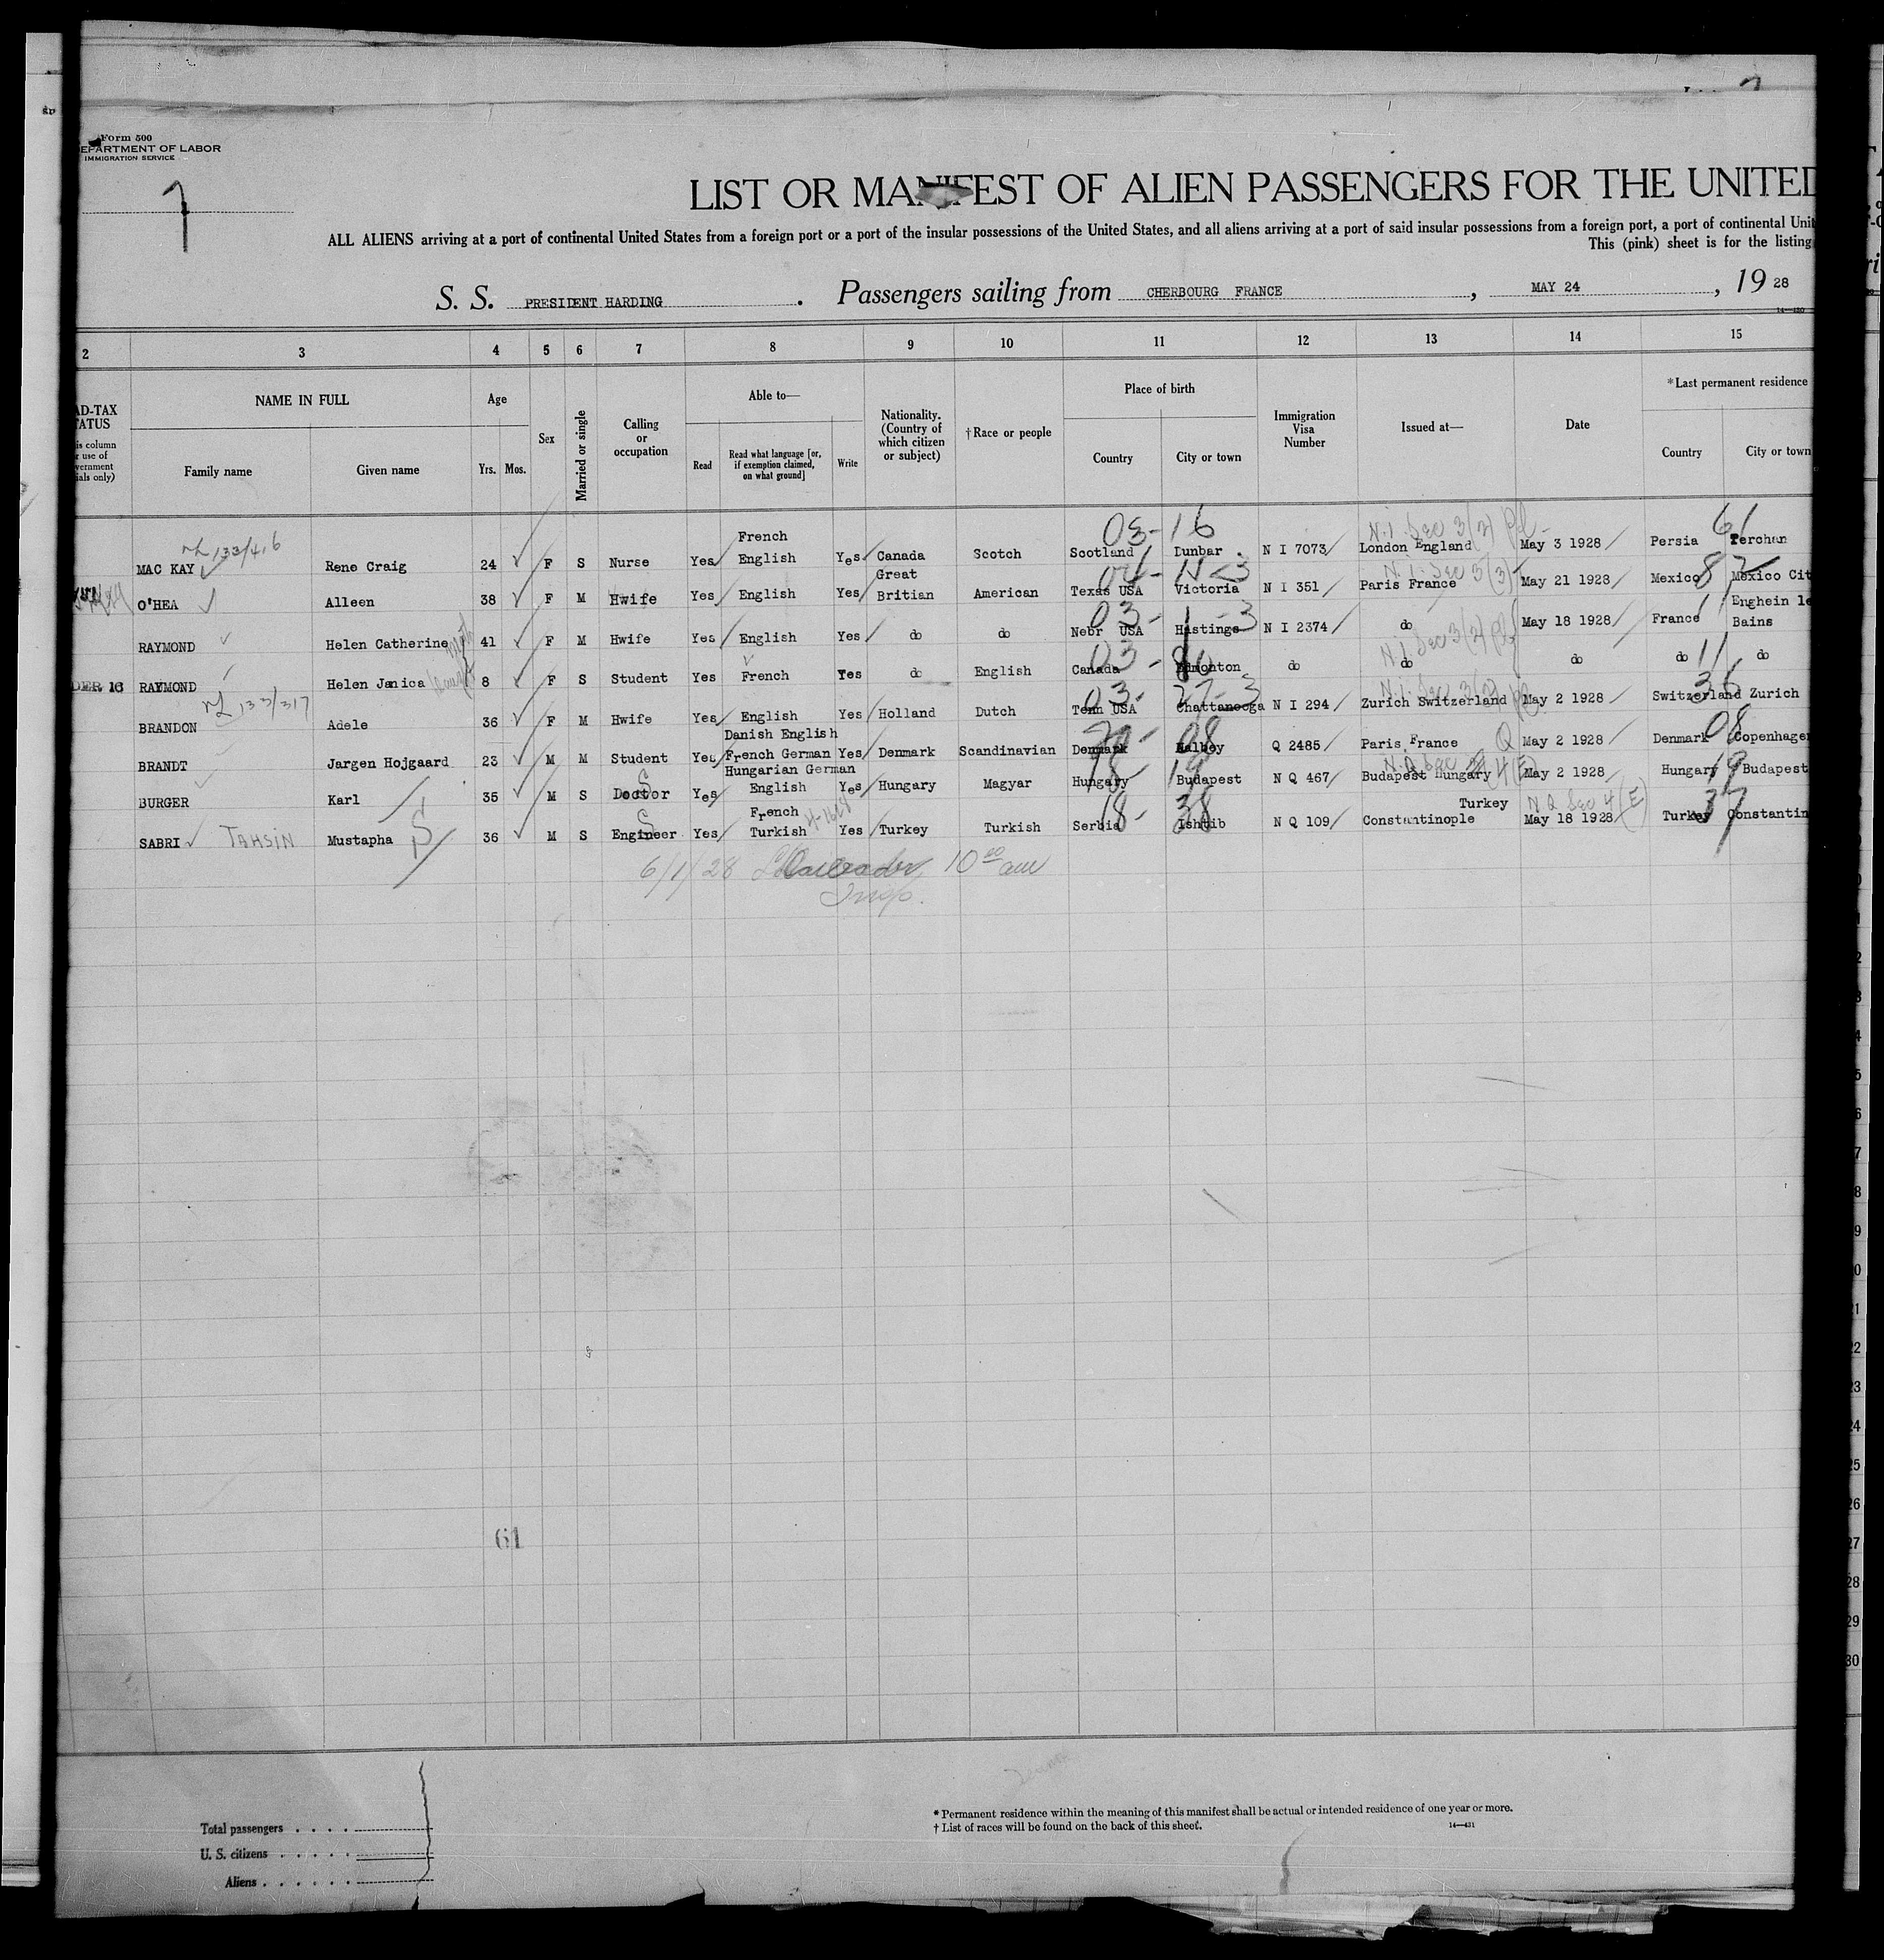 Form 500
DEPARTMENT OF LABOR
IMMIGRATION SERVICE
7
LIST OR MANIFEST OF ALIEN PASSENGERS FOR THE UNITED
ALL ALIENS arriving at a port of continental United States from a foreign port or a port of the insular possessions of the United States, and all aliens arriving at a port of said insular possessions from a foreign port, a port of continental Unit
This (pink) sheet is for the listing
S. S. PRESIDENT HARDING . Passengers sailing from CHERBOURG FRANCE , MAY 24 , 19 28
14—430
2 3 4 5 6 7 8 9 10 11 12 13 14 15
AD-TAX
TATUS
is column
use of
vernment
ials only)
NAME IN FULL
Family name Given name
Age
Yrs. Mos.
Sex
Married or single
Calling
or
occupation
Able to—
Read
Read what language [or,
if exemption claimed,
on what ground]
Write
Nationality.
(Country of
which citizen
or subject)
†Race or people
Place of birth
Country City or town
Immigration
Visa
Number
Issued at—
Date
*Last permanent residence
Country City or town
03-16 N.I. Sec 3(2) 61
133/416 French
MAC KAY Rene Craig 24 F S Nurse Yes English Yes Canada Scotch Scotland Dunbar N I 7073 London England May 3 1928 Persia Terchan
Great N.I. Sec 3(3)
O'HEA Alleen 38 F M Hwife Yes English Yes Britian American Texas USA Victoria N I 351 Paris France May 21 1928 Mexico Mexico Cit
03- Enghein le
RAYMOND Helen Catherine 41 F M Hwife Yes English Yes do do Nebr USA Hastings N I 2374 do May 18 1928 France Bains
03- N.I. Sec 3(2) 11
DER 16 RAYMOND Helen Janica 8 F S Student Yes French Yes do English Canada Edmonton do do do do do
133/317 03-27-3 36
BRANDON Adele 36 F M Hwife Yes English Yes Holland Dutch Tenn USA Chattanooga N I 294 Zurich Switzerland May 2 1928 Switzerland Zurich
Danish English 08 Q 08
BRANDT Jargen Hojgaard 23 M M Student Yes French German Yes Denmark Scandinavian Denmark Aalboy Q 2485 Paris France May 2 1928 Denmark Copenhage
Hungarian German 18-19 4(E) 19
BURGER Karl 35 M S Doctor Yes English Yes Hungary Magyar Hungary Budapest N Q 467 Budapest Hungary May 2 1928 Hungary Budapest
S French 18-38 Turkey N Q Sec 4(E) 37
SABRI TAHSIN Mustapha S 36 M S Engineer Yes Turkish Yes Turkey Turkish Serbia Ishtib N Q 109 Constantinople May 18 1928 Turkey Constantin
6/1/28 10 00 am
Insp.
61
Total passengers . . . .
U. S. citizens . . . . .
Aliens . . . . . .
* Permanent residence within the meaning of this manifest shall be actual or intended residence of one year or more.
† List of races will be found on the back of this sheet.
14—431
22
23
24
25
26
27
28
29
30